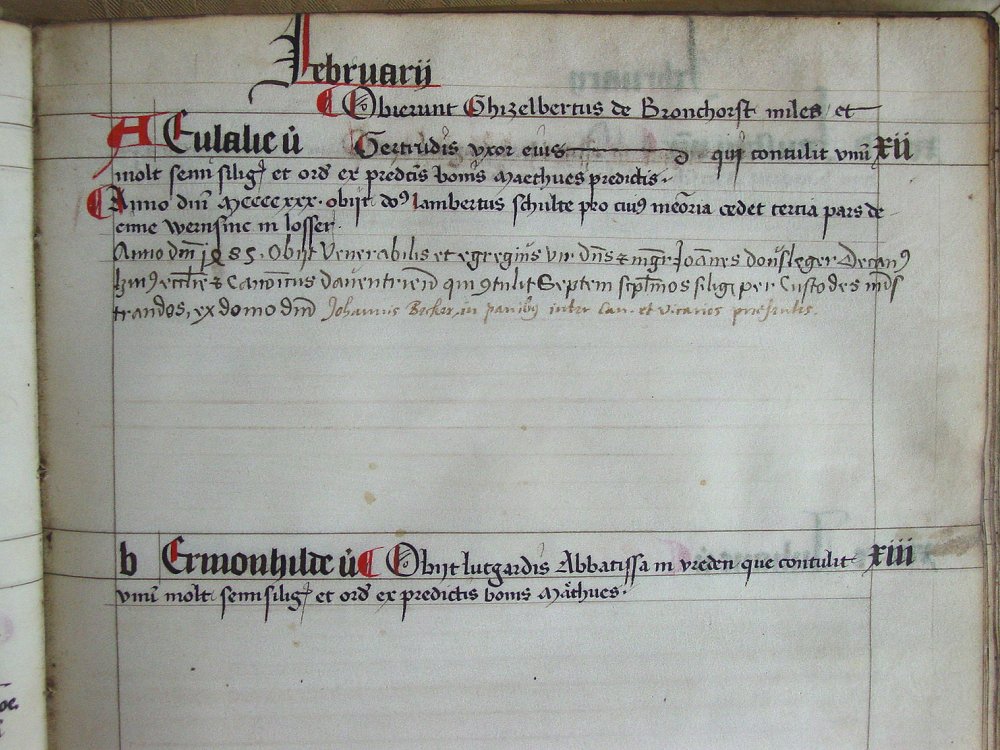 Februarij
Obierunt Ghizelbertus de Bronchorst miles et
A Eulalie v̄ Gertrudis vxor eius qui contulit vnū xij
molt semī silig et ord ex predcīs bonis Maethues predictis.
Anno dm̄ Mccccxxx. obijt dos lambertus schulte pro cuius mēoria cedet tercia pars de
eime wernsinc in losser.
Anno dm̄ 1485. Obijt Venerabilis et egregius vir dn̄s & mgr̄ Joānes Decan9
ecclīe & Canonicus dauentrien̄ qui 9tulit Septem silig per Custodes
trandos, ex domo dm̄ Johannis Becker in panibus inter Can. et vicarios presentes.
b Ermonhilde v̄ Obijt lutgardis Abbatissa in vreden que contulit xiij
vnū molt semi silig et ord ex predictis bonis Maethues.